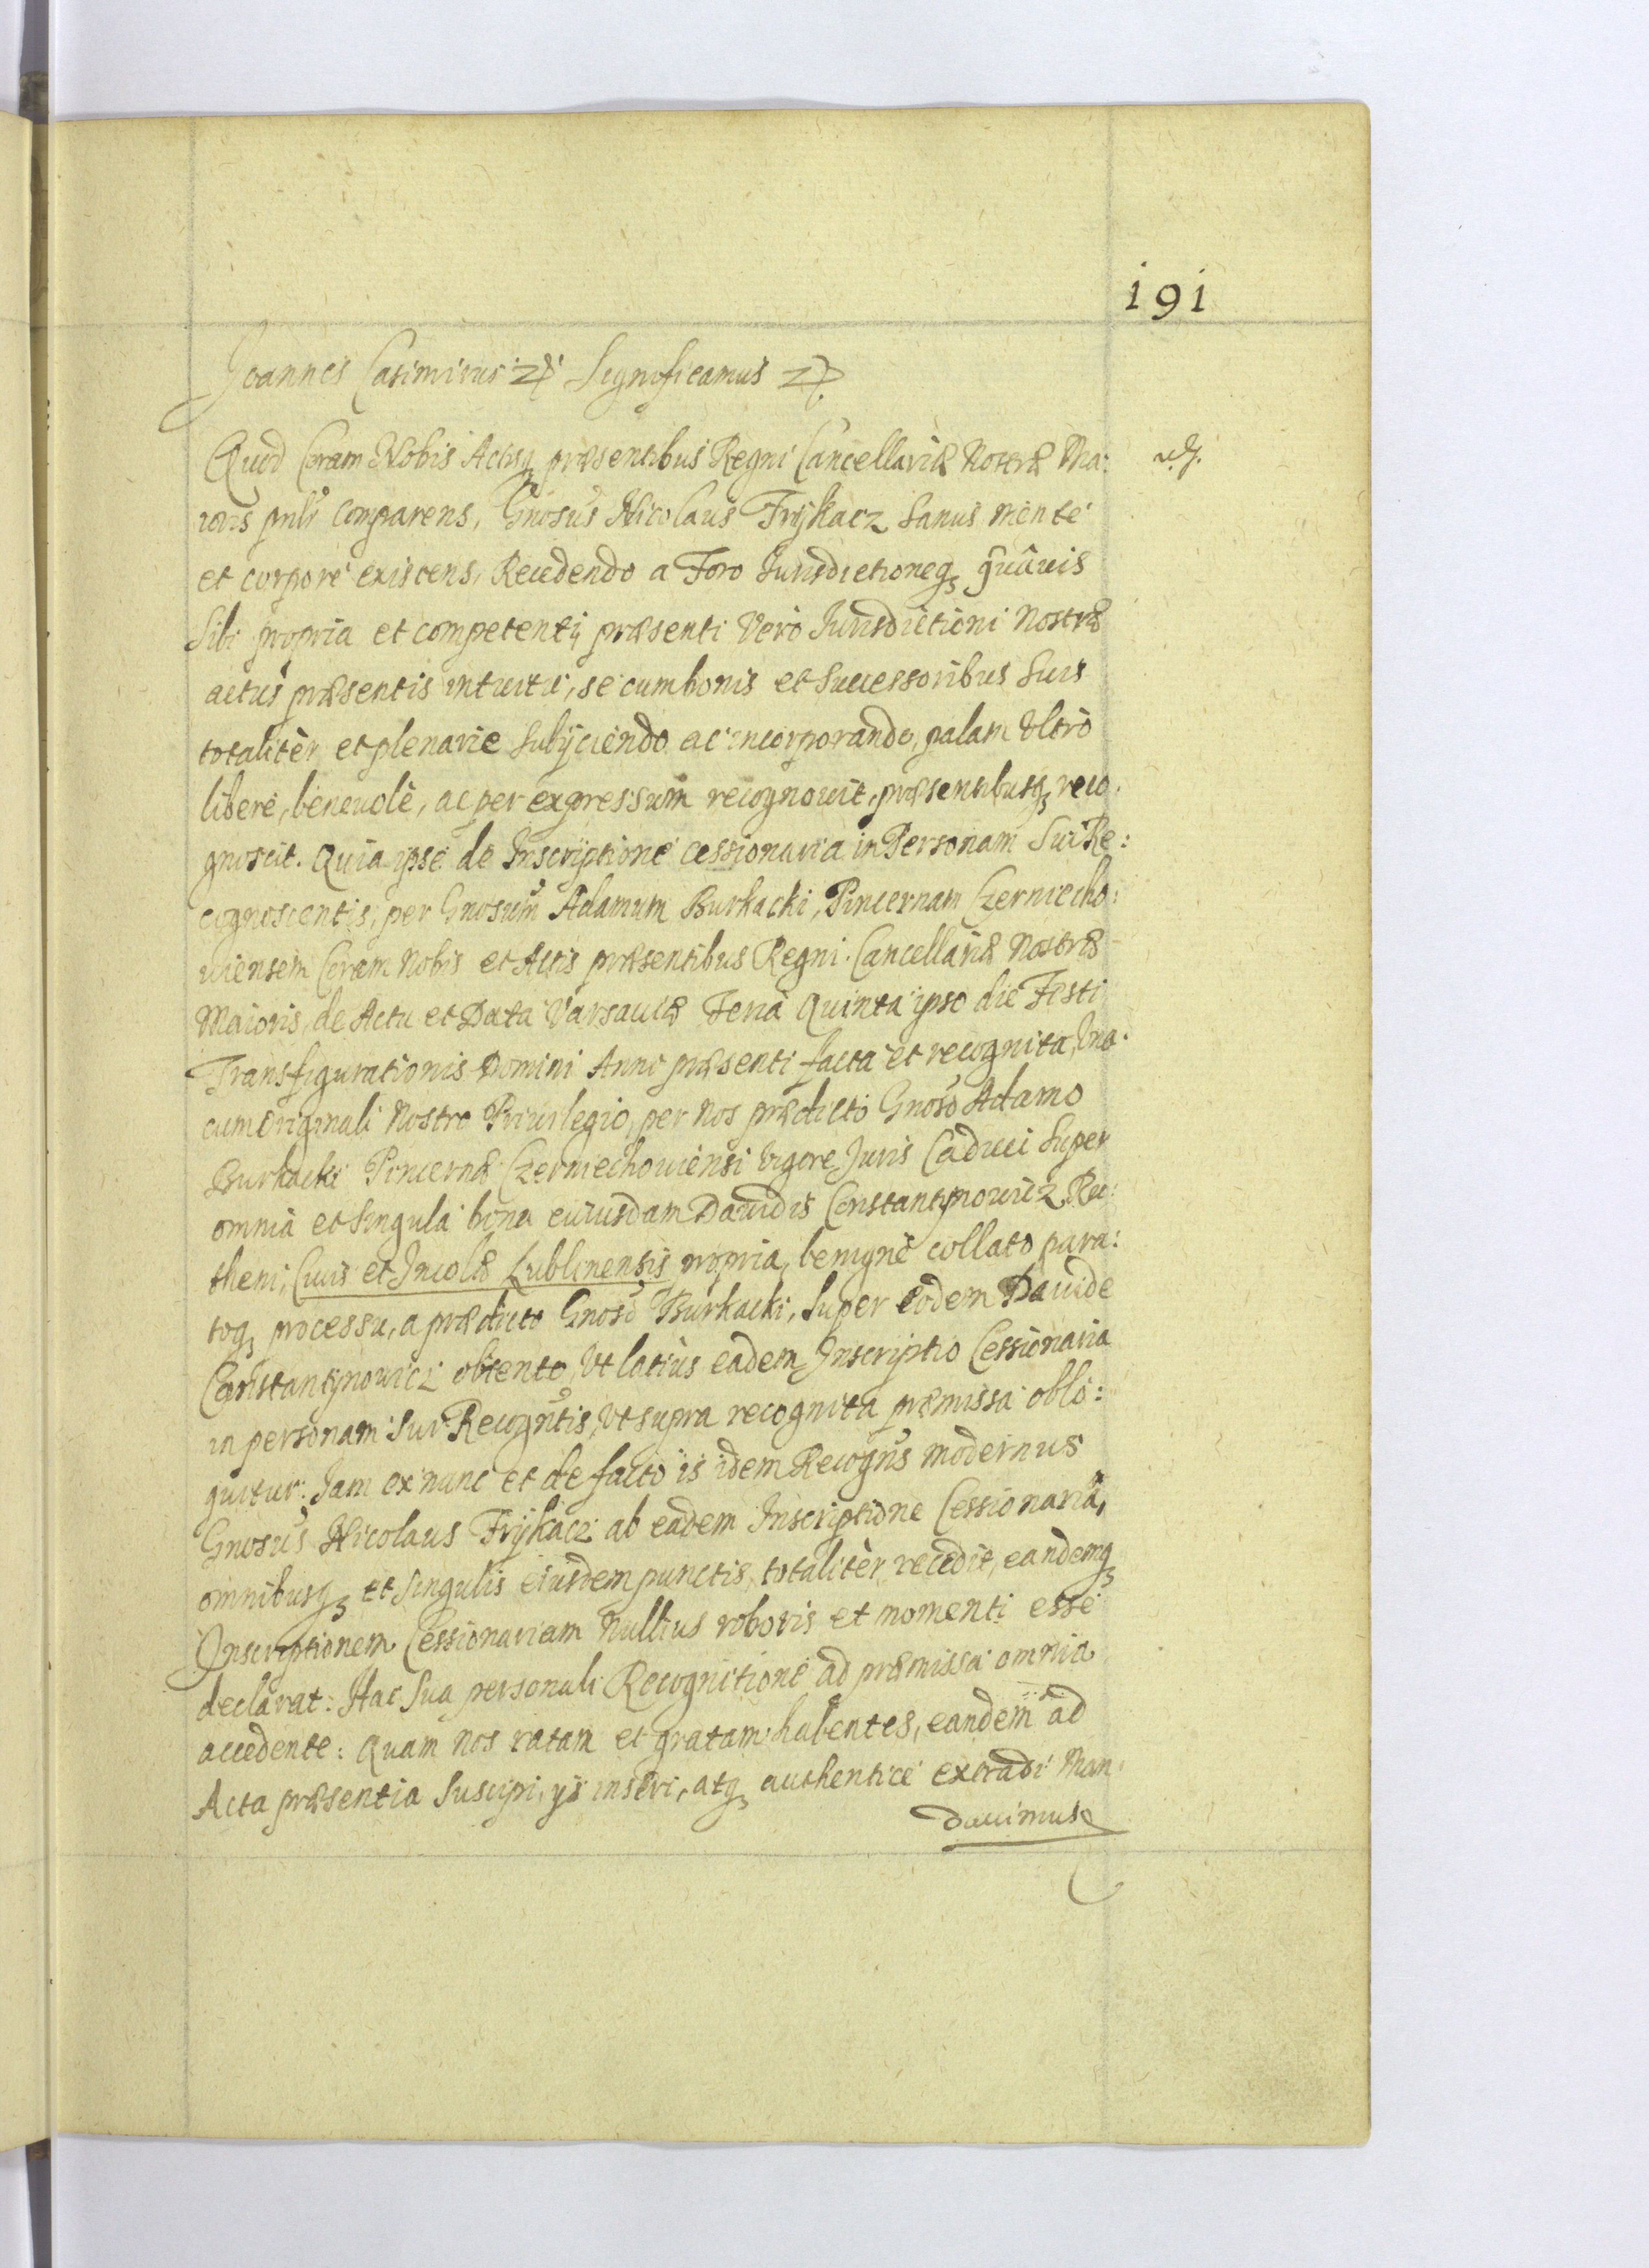 191
Joannes Casimirus Significamus
Quod Coram Nobis Actisq præsentibus Regni Cancellariæ Nostræ Ma:
ioris pnlr Comparens, Gnosus Nicolaus Frÿkacz Sanus mente
et corpore existens, Recedendo a Foro Jurisdictioneq quâuis
Sibi propria et competenti, præsenti Verò Jurisdictioni Nostræ
actus præsentis intuitu, se cum bonis et Successoribus Suis
totalitèr et plenarie Subÿciendo ac incorporando, palam Vltrò
liberè, beneuolè, ac per expressum recognouit, præsentibusq reco.
gnoscit. Quia ipse de Inscriptione cessionaria in Personam Sui Re:
cognoscentis, per Gnosum Adamum Burkacki, Pincernam Czerniecho:
uiensem Coram Nobis et Actis præsentibus Regni Cancellariæ Nostræ
Maioris, de Actu et Data Varsauiæ Feria Quinta ipso die Festi
Transfigurationis Domini Anni præsenti facta et recognita, Vna.
cum Originali Nostro Priuilegio, per Nos prædicto Gnoso Adamo
Burkacki Pincernæ Czerniechouiensi Vigore Juris Caduci Super
omnia et Singula bona cuiusdam Dauidis Constantÿnowicz Ru:
theni, Ciuis et Incolæ Lublinensis propria, benigne collato para:
toq processu, a prædicto Gnoso Burkacki, Super eodem Dauide
Constantÿnowicz obtento, Vt latius eadem Inscriptio Cessionaria
in personam Sui Recogntis, Vt supra recognita præmissa oblo:
quitur. Jam ex nunc et de facto is idem Recogns modernus
Gnosus Nicolaus Frÿkacz ab eadem Inscriptione Cessionaria,
omnibusq et Singulis eiusdem punctis, totalitèr recedit, eandemq
Inscriptionem Cessionariam Nullius roboris et momenti esse
declarat: Hac Sua personali Recognitione ad præmissa omnia
accedente: Quam Nos ratam et gratam habentes, eandem ad
Acta præsentia Suscipi, ÿs inseri, atq authentice extradi Man.
dauimus